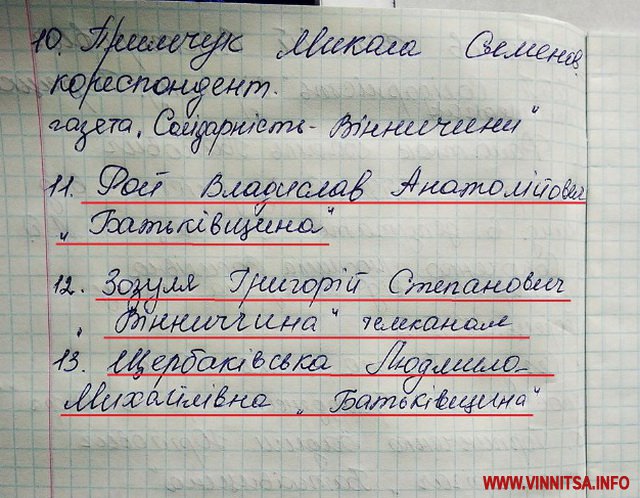 10. Примчук Микола Семенов.
кореспондент.
газета „Солідарність - Вінниччини"
11. Рой Владислав Анатолійович
„Батьківщина"
12. Зозуля Григорій Степанович
„Вінниччина" телеканал
13. Щербаківська Людмила
Михайлівна „Батьківщина"
WWW.VINNITSA.INFO